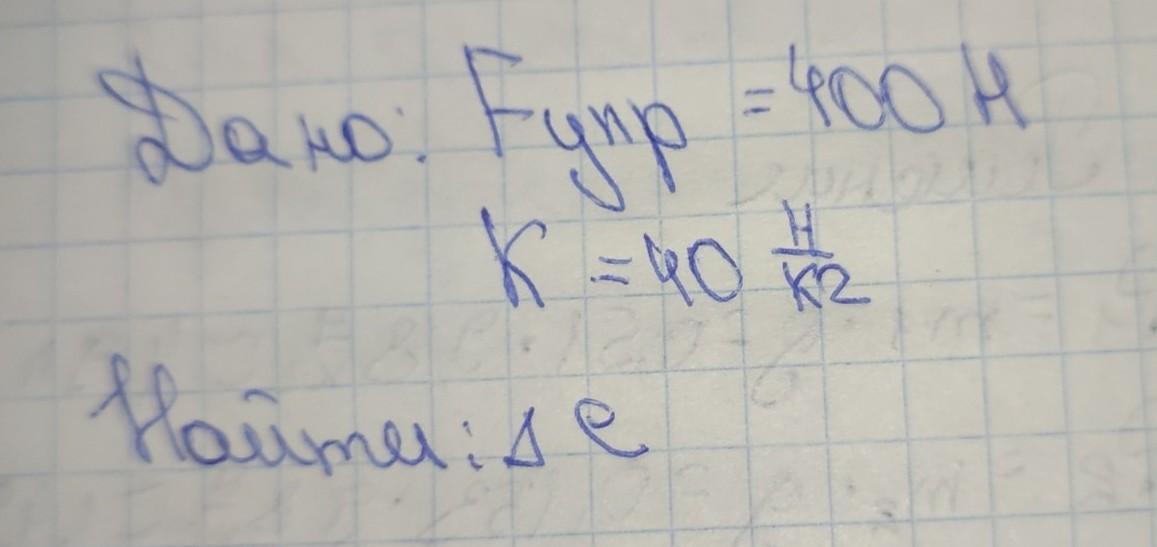 Дано: Fупр = 400 Н
K = 40 Н/кг
Найти: Δ l